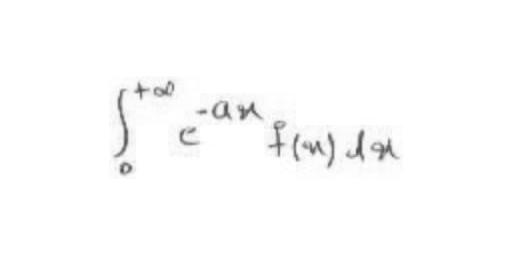 ∫₀^{+∞} e^{-ax} f(x) dx